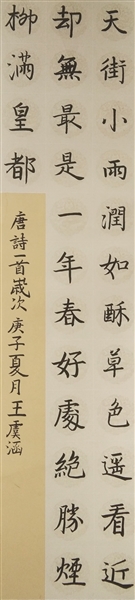 天街小雨潤如酥草色遥看近
却無最是一年春好處絶勝煙
柳滿皇都
唐詩一首歲次庚子夏月王虞涵